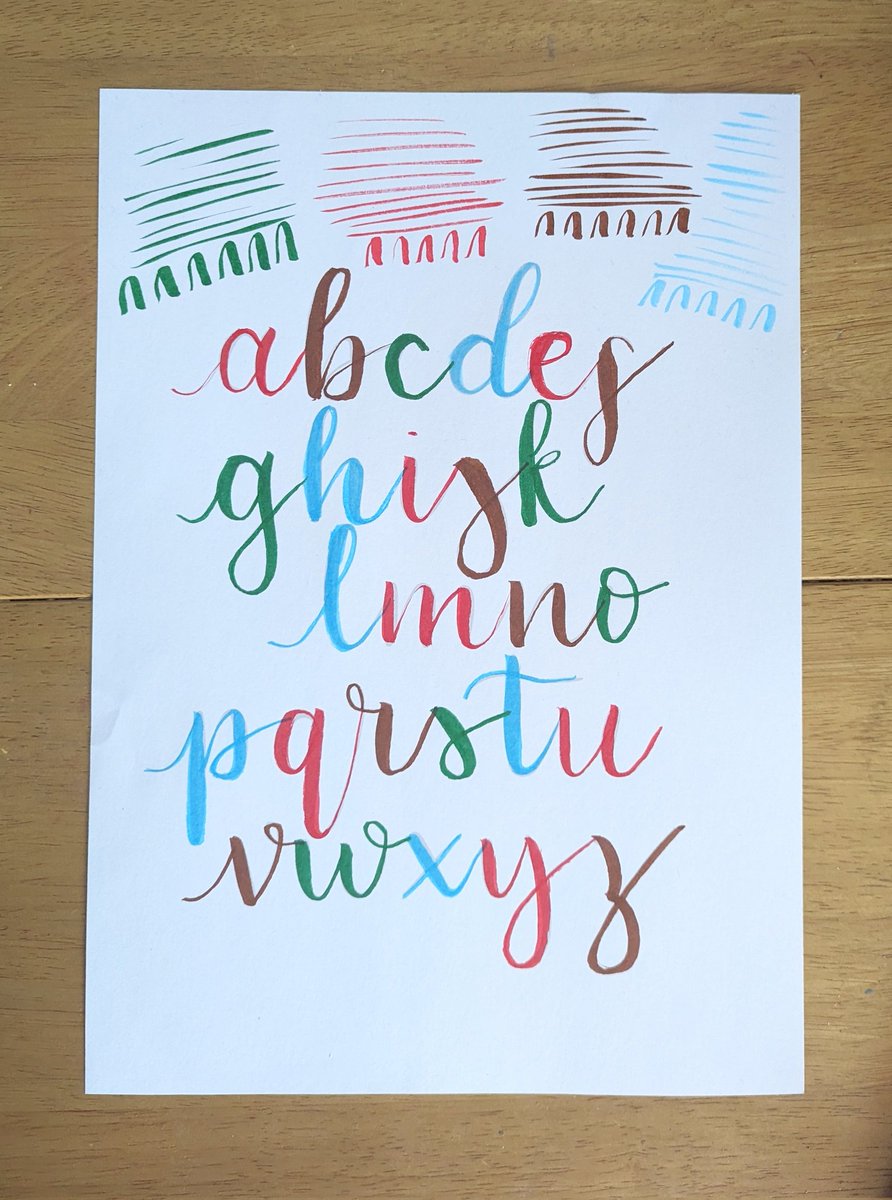 abcdef
ghijk
lmno
pqrstu
vwxyz